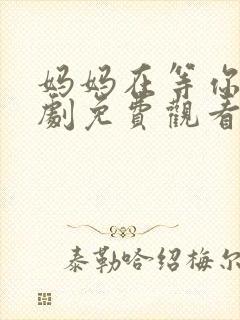 妈妈在等你
劇免費觀看
泰勒哈绍梅尔